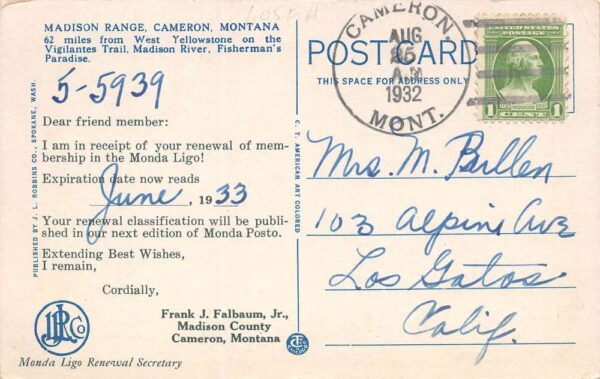 MADISON RANGE, CAMERON, MONTANA
62 miles from West Yellowstone on the
Vigilantes Trail, Madison River, Fisherman's
Paradise.
5-5939
Dear friend member:
I am in receipt of your renewal of mem-
bership in the Monda Ligo!
Expiration date now reads
June, 1933
Your renewal classification will be publi-
shed in our next edition of Monda Posto.
Extending Best Wishes,
I remain,
Cordially,
Frank J. Falbaum, Jr.,
Madison County
Cameron, Montana
Monda Ligo Renewal Secretary
PUBLISHED BY J. L. ROBBINS CO., SPOKANE, WASH.
C. T. AMERICAN ART COLORED
POSTCARD
THIS SPACE FOR ADDRESS ONLY
CAMERON,
AUG
25
A.M
1932
MONT.
UNITED STATES POSTAGE
1 CENT 1
Mrs. M. Bullen
103 Alpine Ave
Los Gatos
Calif.